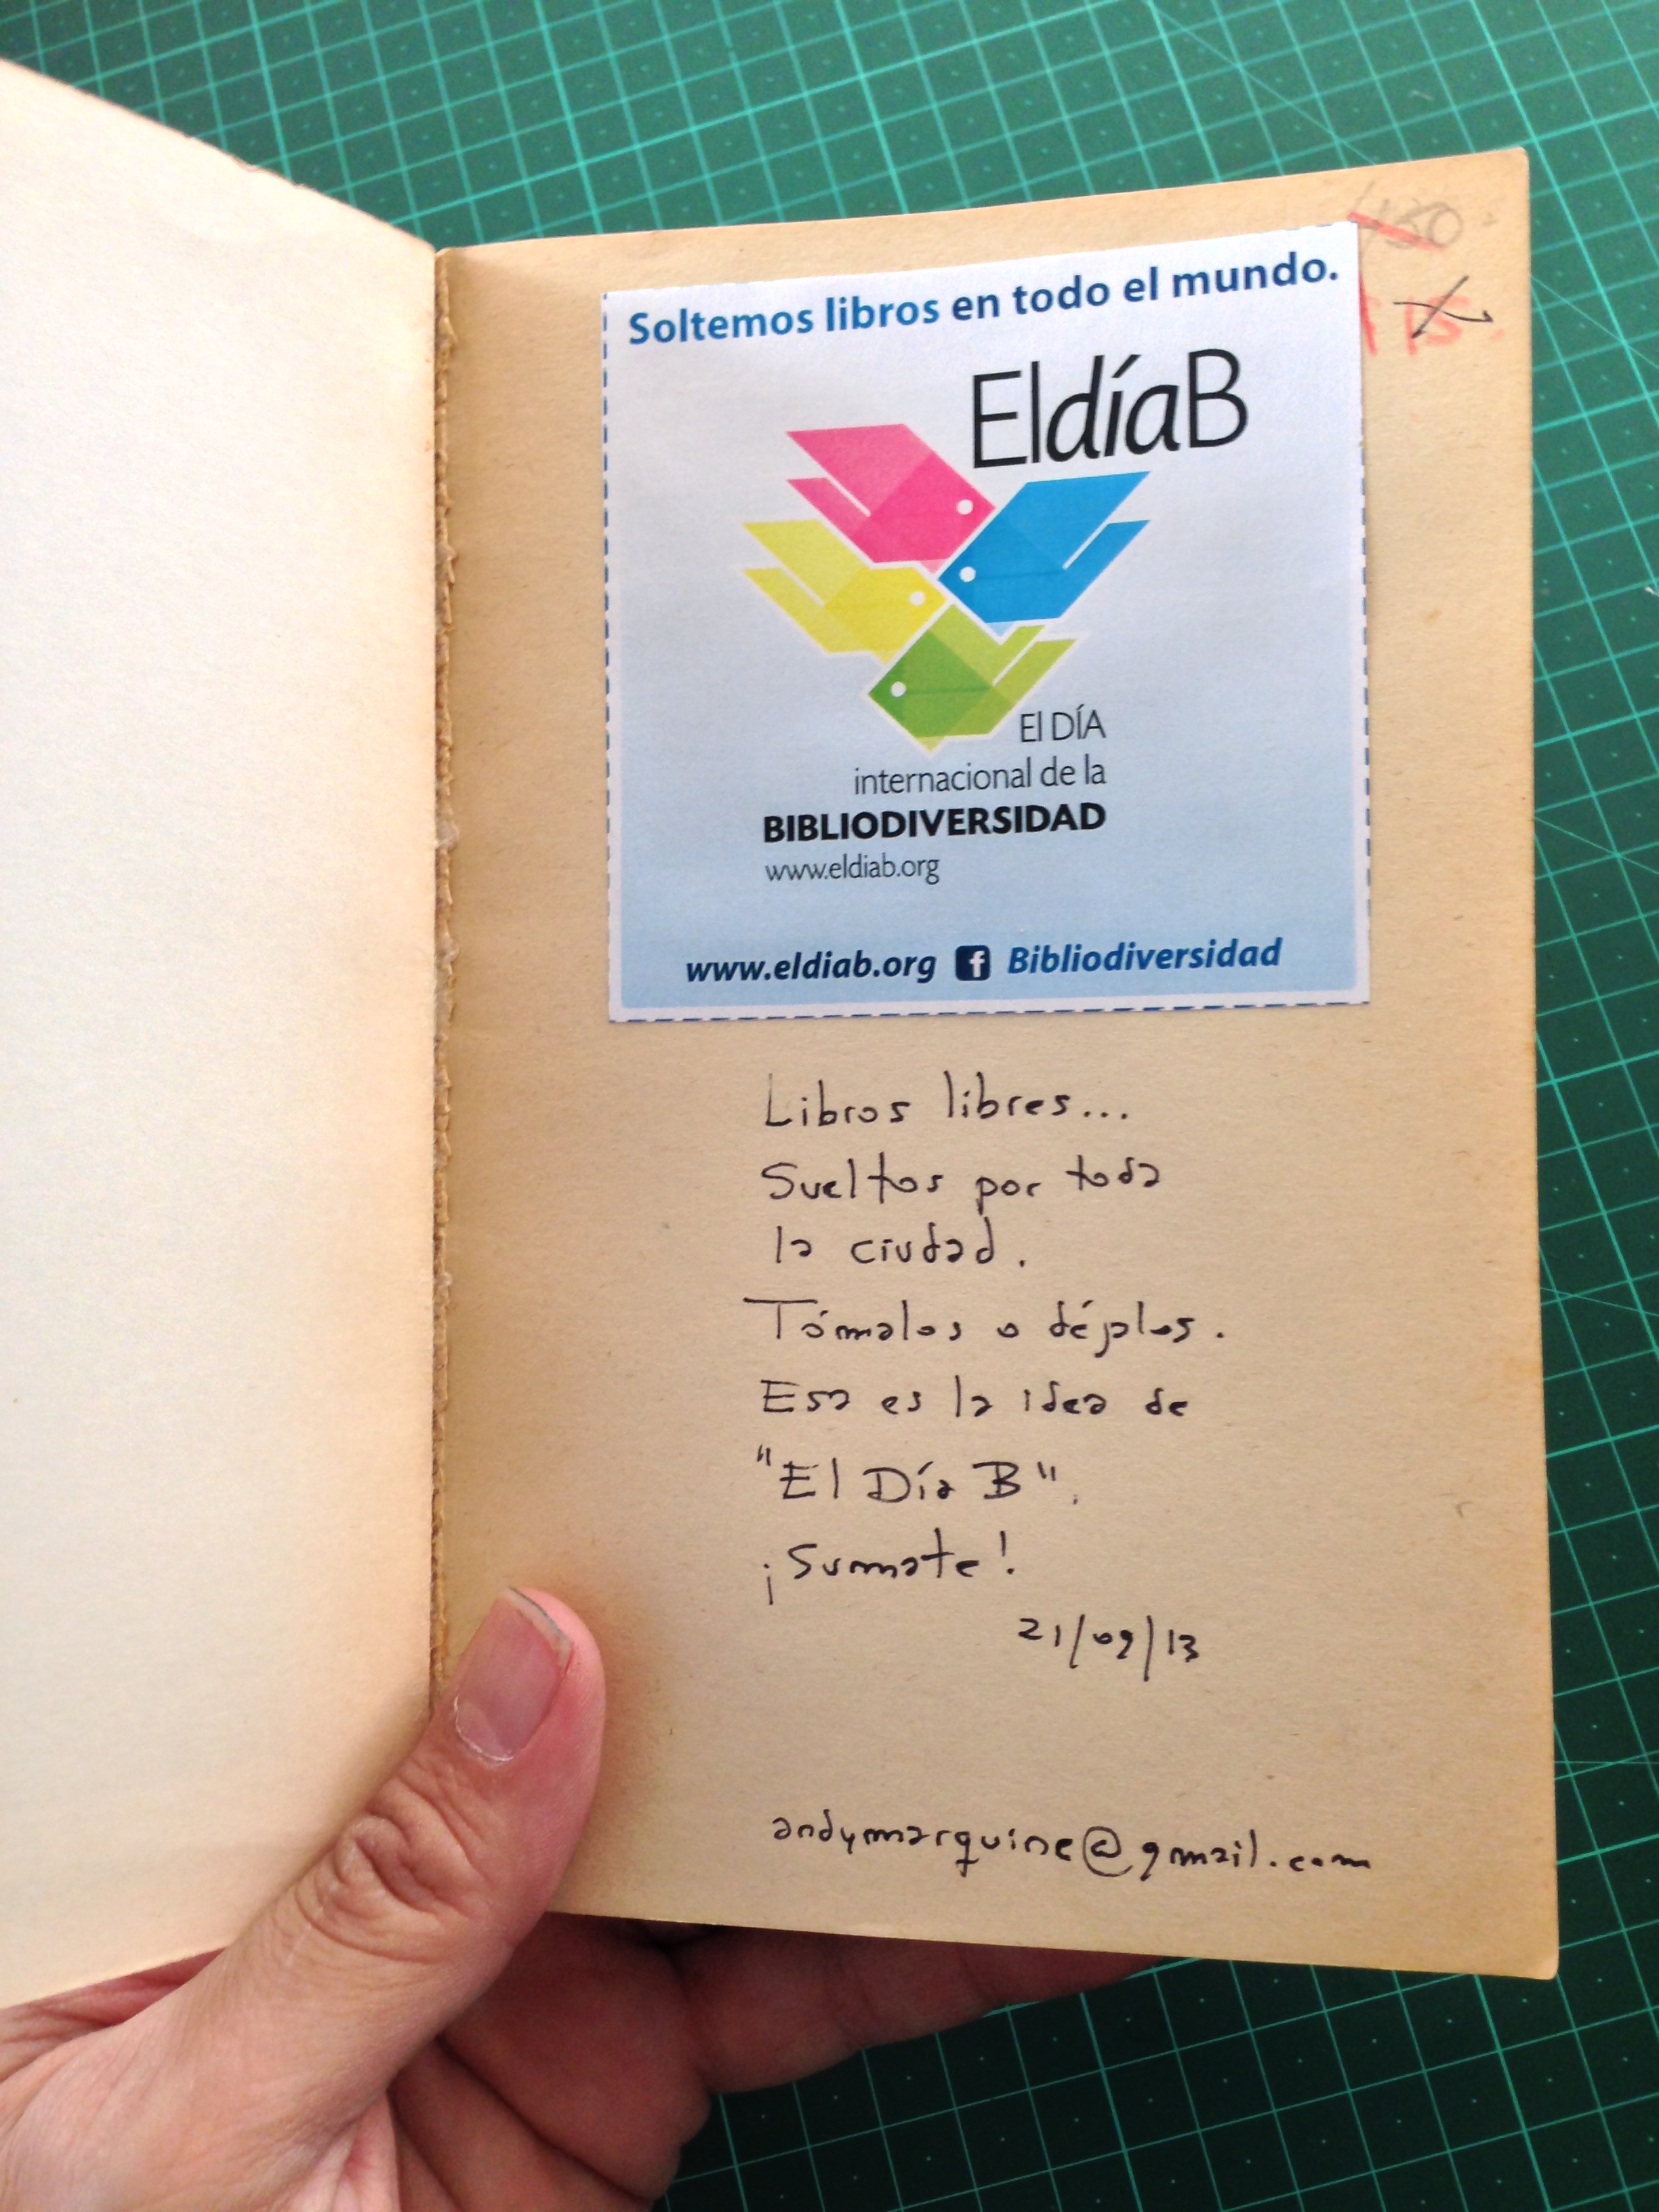 Soltemos libros en todo el mundo.
EldíaB
El DÍA
internacional de la
BIBLIODIVERSIDAD
www.eldiab.org
www.eldiab.org f Bibliodiversidad
Libros libres...
Sueltos por toda
la ciudad.
Tómalos o déjalos.
Esa es la idea de
"El Día B".
¡Sumate!
21/09/13
andymarquine@gmail.com